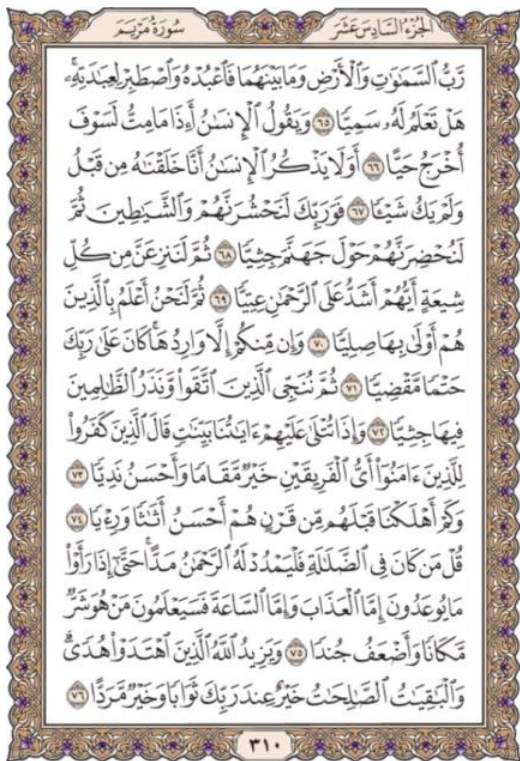 الجُزْءُ السَّادِسَ عَشَرَ
سُورَةُ مَرْيَم
رَّبُّ السَّمَٰوَٰتِ وَالْأَرْضِ وَمَا بَيْنَهُمَا فَاعْبُدْهُ وَاصْطَبِرْ لِعِبَٰدَتِهِۦۚ
هَلْ تَعْلَمُ لَهُۥ سَمِيًّا ٦٥ وَيَقُولُ الْإِنسَٰنُ أَءِذَا مَا مِتُّ لَسَوْفَ
أُخْرَجُ حَيًّا ٦٦ أَوَلَا يَذْكُرُ الْإِنسَٰنُ أَنَّا خَلَقْنَٰهُ مِن قَبْلُ
وَلَمْ يَكُ شَيْـًٔا ٦٧ فَوَرَبِّكَ لَنَحْشُرَنَّهُمْ وَالشَّيَٰطِينَ ثُمَّ
لَنُحْضِرَنَّهُمْ حَوْلَ جَهَنَّمَ جِثِيًّا ٦٨ ثُمَّ لَنَنزِعَنَّ مِن كُلِّ
شِيعَةٍ أَيُّهُمْ أَشَدُّ عَلَى الرَّحْمَٰنِ عِتِيًّا ٦٩ ثُمَّ لَنَحْنُ أَعْلَمُ بِالَّذِينَ
هُمْ أَوْلَىٰ بِهَا صِلِيًّا ٧٠ وَإِن مِّنكُمْ إِلَّا وَارِدُهَاۚ كَانَ عَلَىٰ رَبِّكَ
حَتْمًا مَّقْضِيًّا ٧١ ثُمَّ نُنَجِّي الَّذِينَ اتَّقَوا۟ وَّنَذَرُ الظَّٰلِمِينَ
فِيهَا جِثِيًّا ٧٢ وَإِذَا تُتْلَىٰ عَلَيْهِمْ ءَايَٰتُنَا بَيِّنَٰتٍ قَالَ الَّذِينَ كَفَرُوا۟
لِلَّذِينَ ءَامَنُوٓا۟ أَيُّ الْفَرِيقَيْنِ خَيْرٌ مَّقَامًا وَأَحْسَنُ نَدِيًّا ٧٣
وَكَمْ أَهْلَكْنَا قَبْلَهُم مِّن قَرْنٍ هُمْ أَحْسَنُ أَثَٰثًا وَرِءْيًا ٧٤
قُلْ مَن كَانَ فِي الضَّلَٰلَةِ فَلْيَمْدُدْ لَهُ الرَّحْمَٰنُ مَدًّاۚ حَتَّىٰٓ إِذَا رَأَوْا۟
مَا يُوعَدُونَ إِمَّا الْعَذَابَ وَإِمَّا السَّاعَةَ فَسَيَعْلَمُونَ مَنْ هُوَ شَرٌّ
مَّكَانًا وَأَضْعَفُ جُندًا ٧٥ وَيَزِيدُ اللَّهُ الَّذِينَ اهْتَدَوْا۟ هُدًىۗ
وَالْبَٰقِيَٰتُ الصَّٰلِحَٰتُ خَيْرٌ عِندَ رَبِّكَ ثَوَابًا وَخَيْرٌ مَّرَدًّا ٧٦
٣١٠